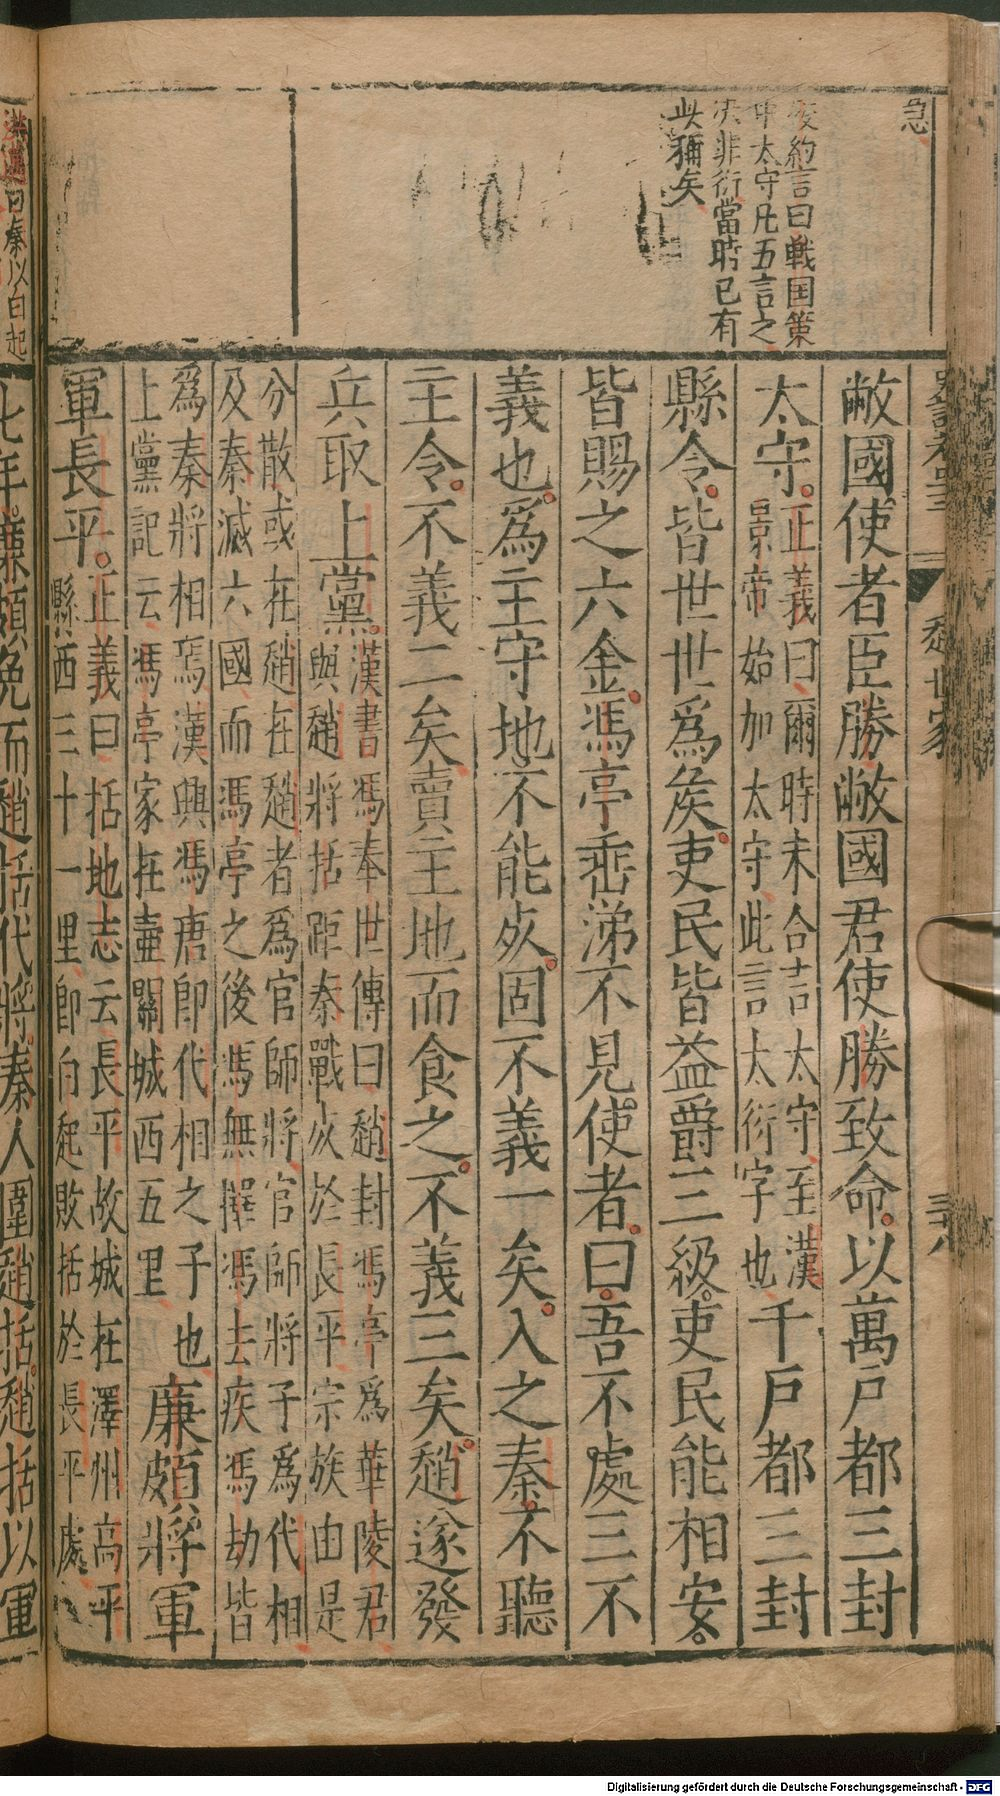 急
按約言曰戰国策
中太守凡五言之
決非衍當時已有
此稱矣
趙世家
敝國使者臣勝敝國君使勝致命以萬戶都三封
太守正義曰爾時未合言太守至漢
景帝始加太守此言太衍字也千戶都三封
縣令皆世世爲矦吏民皆益爵三級吏民能相安
皆賜之六金馮亭垂涕不見使者曰吾不處三不
義也爲主守地不能死固不義一矣入之秦不聽
主令不義二矣賣主地而食之不義三矣趙遂發
兵取上黨漢書馮奉世傳曰趙封馮亭爲華陵君
與趙將括距秦戰死於長平宗族由是
分散或在趙在趙者爲官師將官師將子爲代相
及秦滅六國而馮亭之後馮無擇馮去疾馮劫皆
爲秦將相焉漢興馮唐卽代相之子也
上黨記云馮亭家在壷關城西五里廉頗將軍
軍長平正義曰括地志云長平故城在澤州高平
縣西三十一里卽白起敗括於長平處
洪邁曰秦以白起
七年廉頗免而趙括代將秦人圍趙括趙括以軍
Digitalisierung gefördert durch die Deutsche Forschungsgemeinschaft - DFG